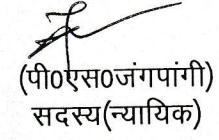 (पी0एस0जंगपांगी)
सदस्य(न्यायिक)